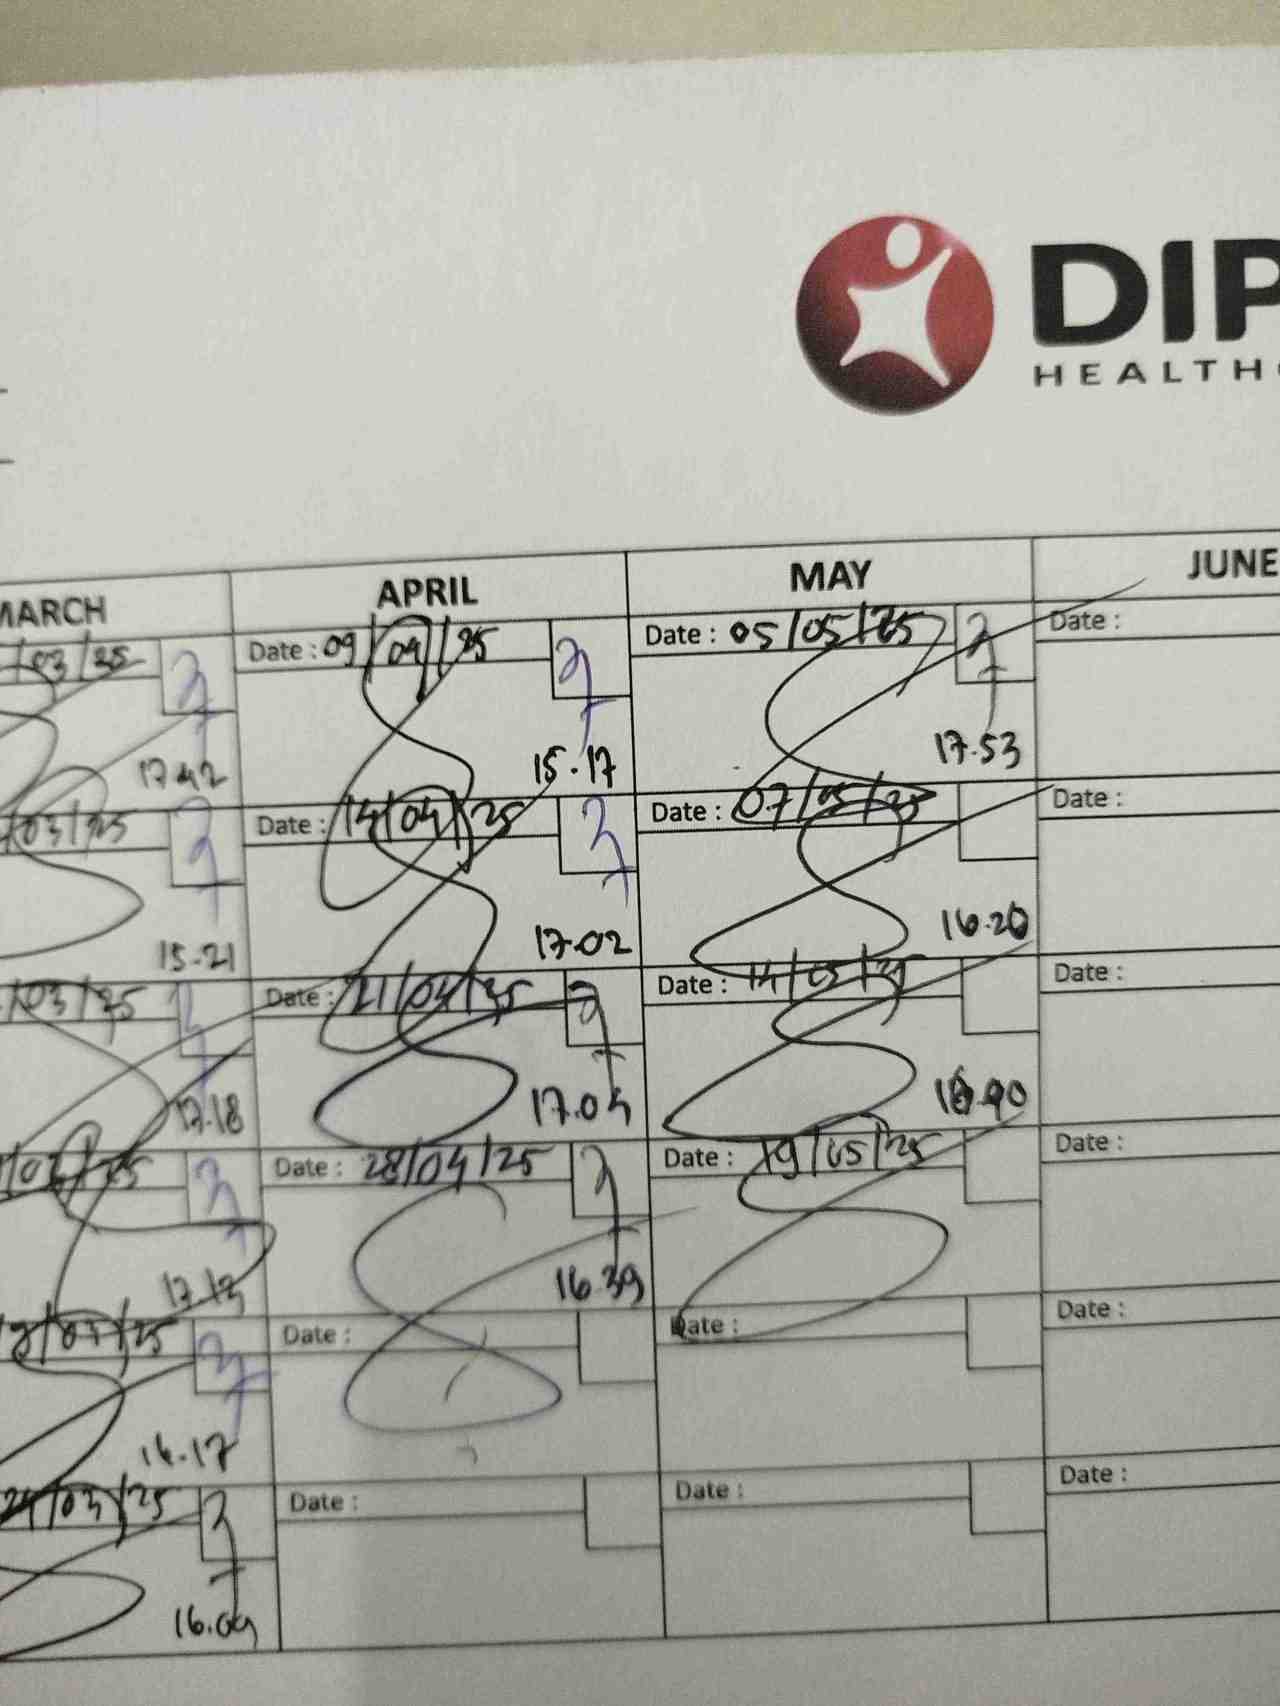 DIP
HEALTHC
MARCH APRIL MAY JUNE
/03/25 Date : 09/04/25 Date : 05/05/25 Date :
17.42 15.17 17.53
/03/25 Date : 14/04/25 Date : 07/05/25 Date :
15.21 17.02 16.20
/03/25 Date : 21/04/25 Date : 14/05/25 Date :
17.18 17.04
/25 Date : 28/04/25 Date : 19/05/25 Date :
17.13 16.39
/25 Date : Date : Date :
16.17
24/03/25 Date : Date : Date :
16.09